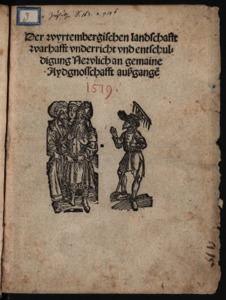 Der wyrtembergischen landschafft
warhafft vnderricht vnd entschul-
digung Newlich an gemaine
Aydgnosschafft außgangē
1519.